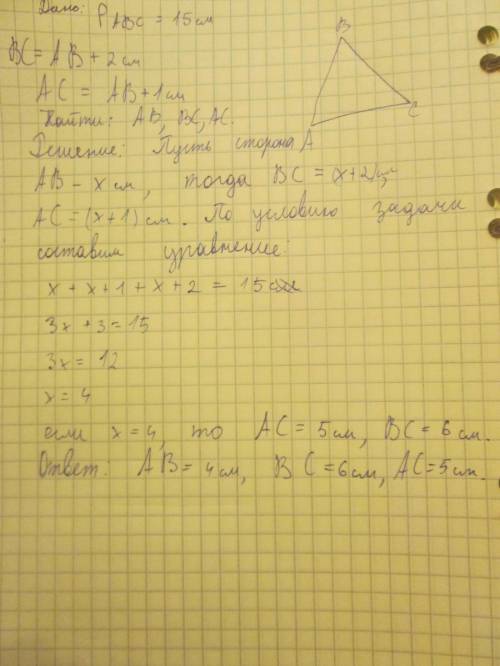 Дано: P ABC = 15 см
BC = AB + 2 см
AC = AB + 1 см
Найти: AB, BC, AC.
Решение: Пусть сторона
AB - x см, тогда BC = (x+2) см,
AC = (x+1) см. По условию задачи
составим уравнение:
x + x + 1 + x + 2 = 15
3x + 3 = 15
3x = 12
x = 4
если x = 4, то AC = 5 см, BC = 6 см.
Ответ: AB = 4 см, BC = 6 см, AC = 5 см.
B
C
A